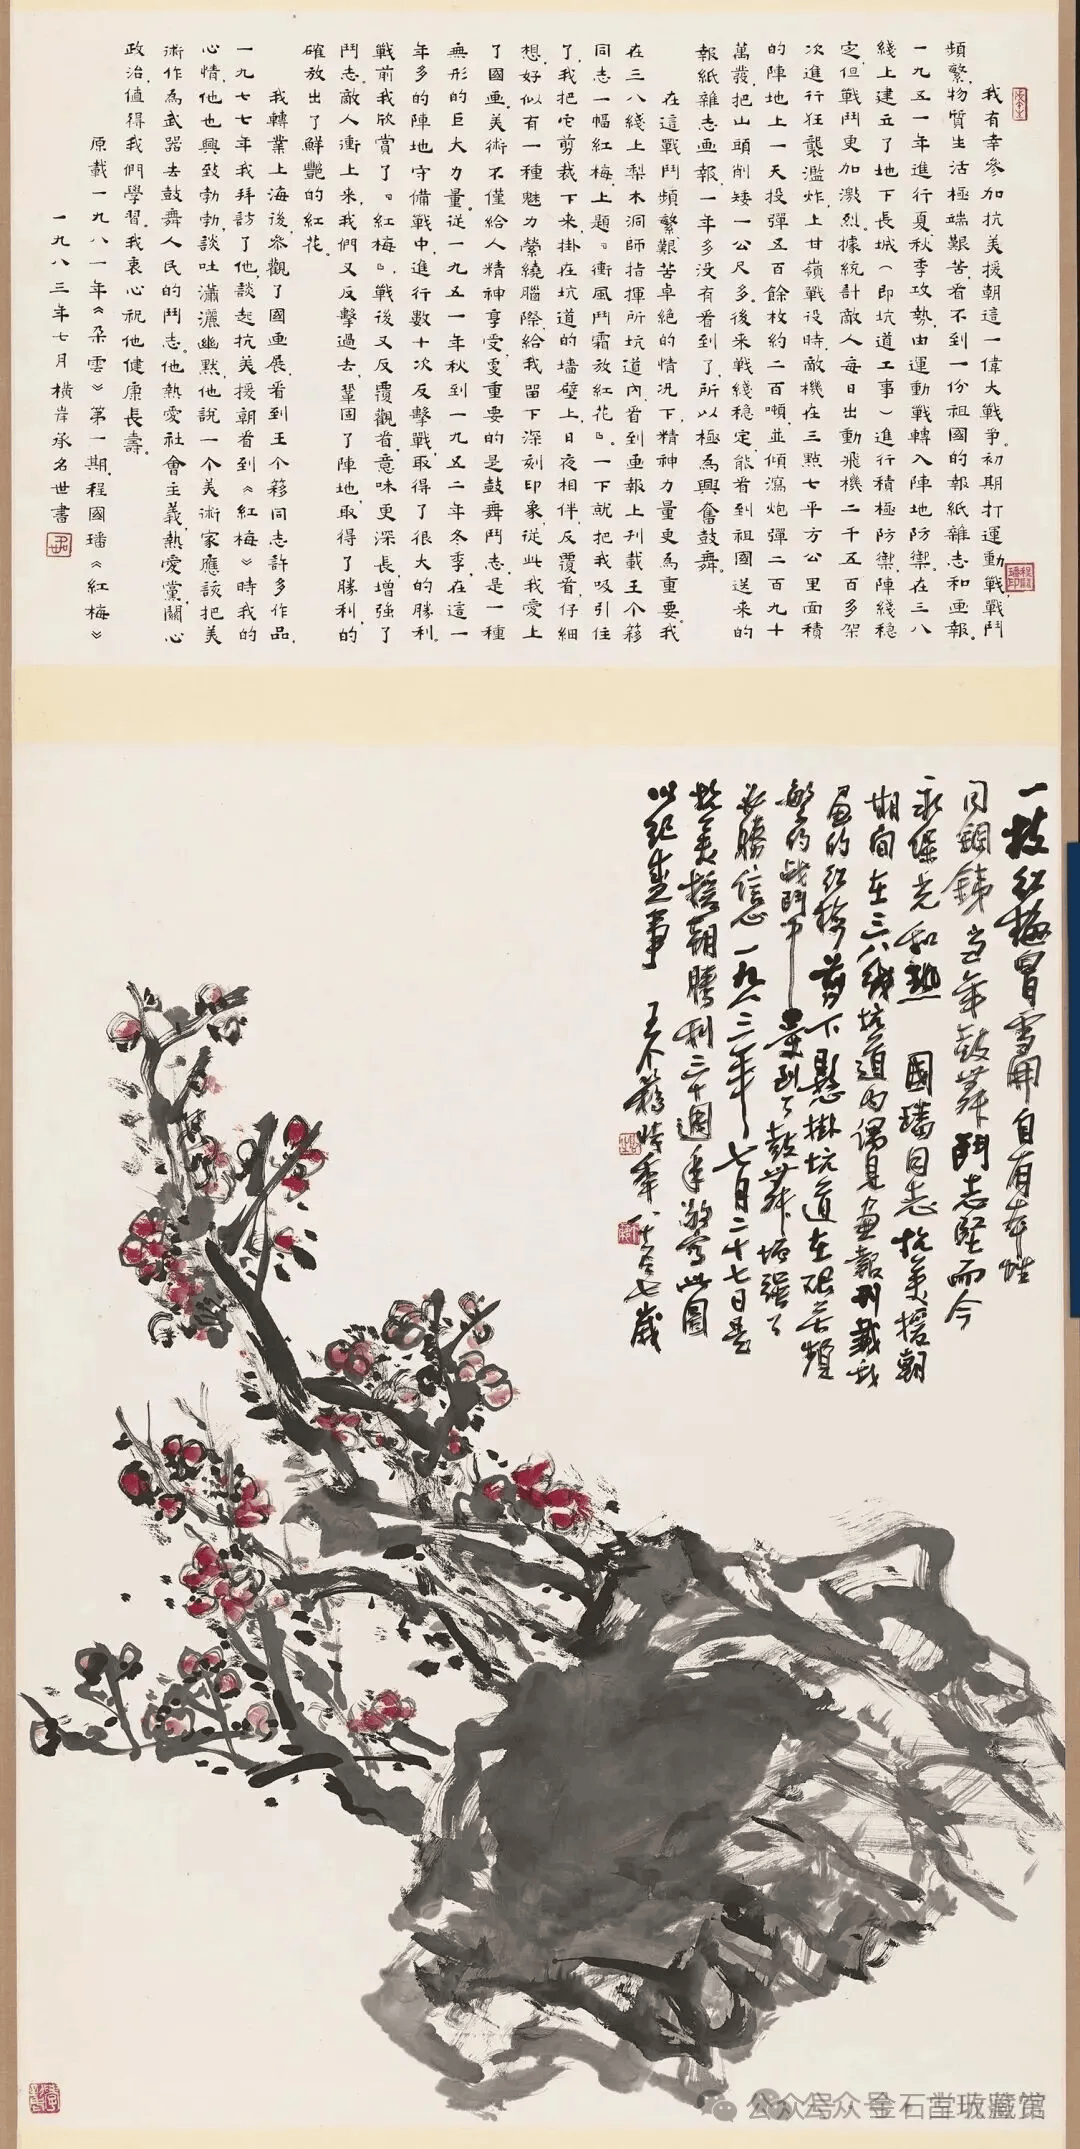 我有幸參加抗美援朝這一偉大戰爭。初期打運動戰，戰鬥
頻繁，物質生活極端艱苦，看不到一份祖國的報紙雜志和画報。
一九五一年進行夏、秋季攻勢，由運動戰轉入陣地防禦。在三八
綫上建立了地下長城（即坑道工事）進行積極防禦，陣綫穩
定，但戰鬥更加激烈。據統計敵人每日出動飛機二千五百多架
次進行狂襲濫炸，上甘嶺戰役時，敵機在三點七平方公里面積
的陣地上一天投彈五百餘枚約二百噸，並傾瀉炮彈二百九十
萬發，把山頭削矮一公尺多。後來戰綫穩定，能看到祖國送來的
報紙雜志画報，一年多没有看到了，所以極為興奮鼓舞。
在這戰鬥頻繁艱苦卓絶的情况下，精神力量更為重要。我
在三八綫上梨木洞師指揮所坑道內，看到画報上刊載王个簃
同志一幅紅梅，上題『衝風鬥霜放紅花』。一下就把我吸引住
了，我把它剪裁下來，掛在坑道的墻壁上，日夜相伴，反覆看，仔細
想，好似有一種魅力縈繞腦際，給我留下深刻印象，從此我愛上
了國画。美術不僅給人精神享受，更重要的是鼓舞鬥志，是一種
無形的巨大力量。從一九五一年秋到一九五二年冬季，在這一
年多的陣地守備戰中，進行數十次反擊戰，取得了很大的勝利。
戰前我欣賞了『紅梅』，戰後又反覆觀看，意味更深長，增強了
鬥志，敵人衝上來，我們又反擊過去，鞏固了陣地，取得了勝利，的
確放出了鮮艷的紅花。
我轉業上海後，参觀了國画展，看到王个簃同志許多作品，
一九七七年我拜訪了他，談起抗美援朝看到《紅梅》時我的
心情，他也興致勃勃，談吐瀟灑幽默，他說一个美術家應該把美
術作為武器去鼓舞人民的鬥志。他熱愛社會主義，熱愛黨，關心
政治，值得我們學習。我衷心祝他健康長壽。
原載一九八一年《朵雲》第一期，程國璠《紅梅》
一九八三年七月橫岸承名世書
一枝紅梅冒雪開自有本性
同鋼銕當年鼓舞鬥志堅而今
永保光和熱 國璠同志抗美援朝
期间在三八綫坑道內偶見画報刊載我
画的紅梅剪下懸掛坑道在艱苦頻
繁的战鬥中受到了鼓舞增强了
必勝信心一九八三年七月二十七日是
抗美援朝勝利三十週年敬寫此圖
以紀盛事 王个簃時年八十七歲
公众号·金石堂收藏馆